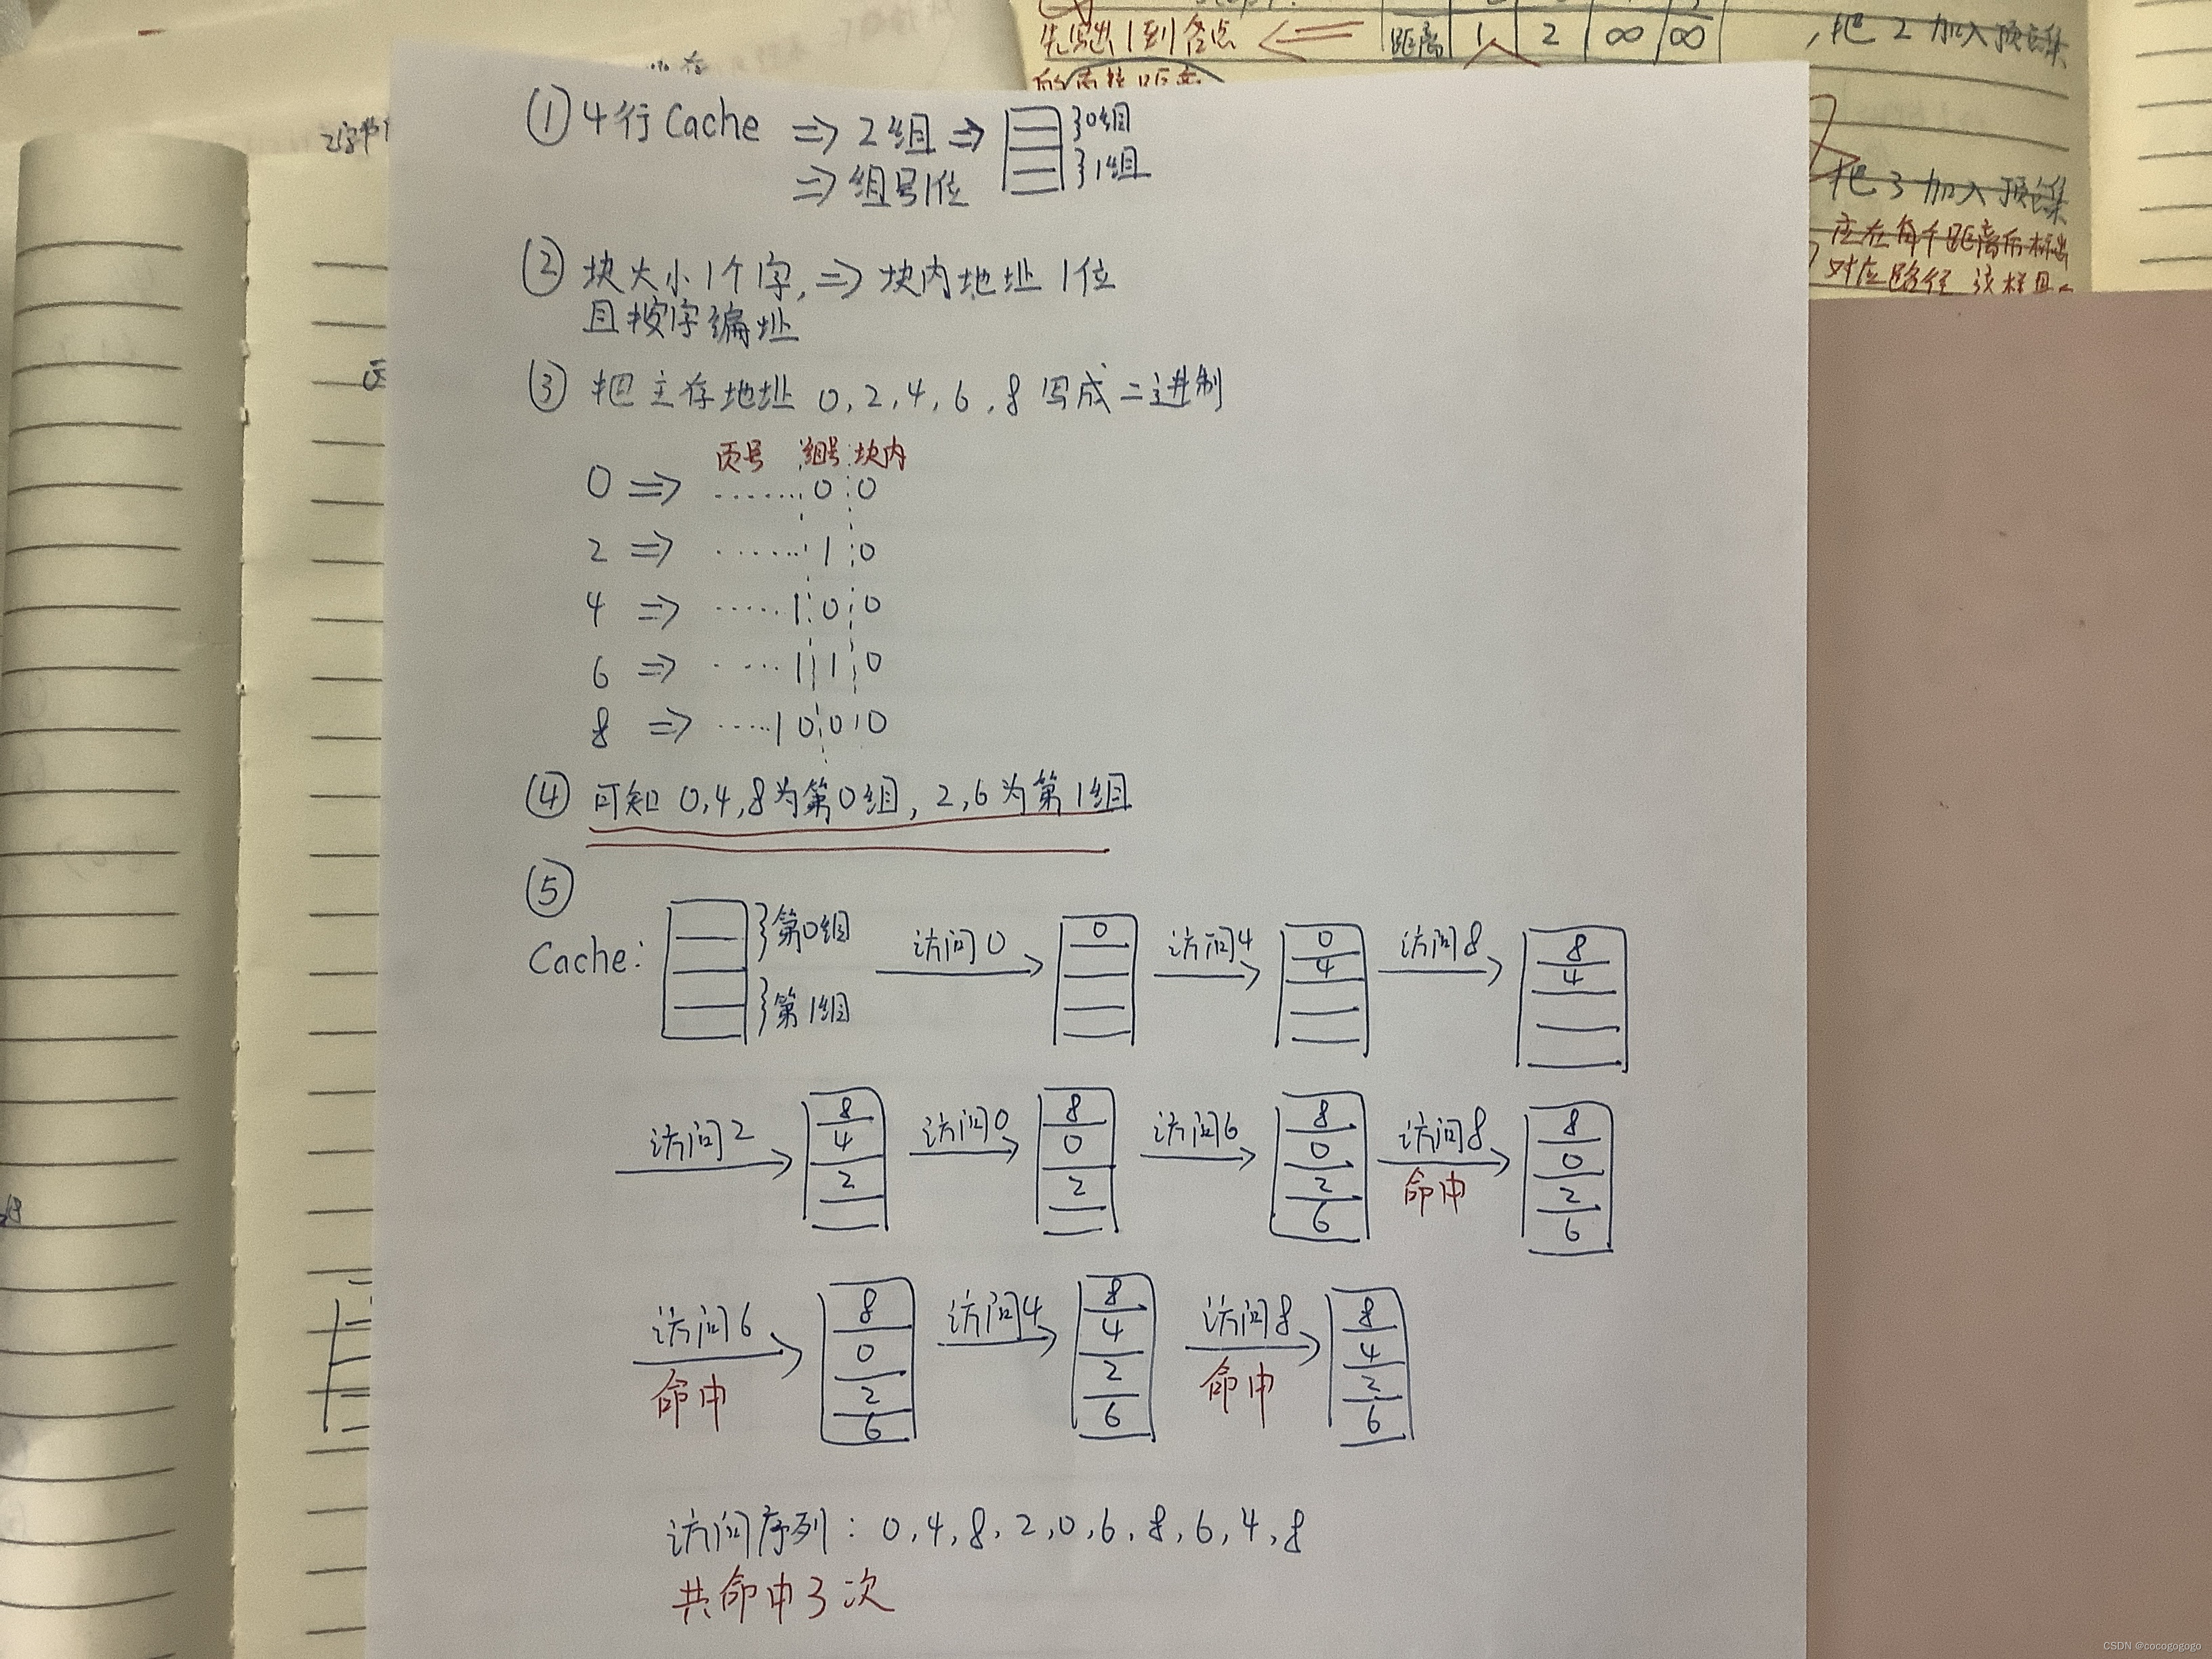 先写出1到各点
距离 1 2 ∞ ∞
,把2加入顶点集
把3加入顶点集
应在每个距离后标出
对应路径
①4行Cache ⇒ 2组 ⇒ }0组
}1组
⇒ 组号1位
②块大小1个字, ⇒ 块内地址1位
且按字编址
③把主存地址 0,2,4,6,8写成二进制
页号 组号 块内
0 ⇒ ......0 0
2 ⇒ ......1 0
4 ⇒ .....1 0 0
6 ⇒ ....1 1 0
8 ⇒ .....1 0 0 0
④可知 0,4,8为第0组, 2,6为第1组
⑤
Cache: }第0组 }第1组 访问0 0 访问4 0 4 访问8 8 4
访问2 8 4 2 访问0 8 0 2 访问6 8 0 2 6 访问8 命中 8 0 2 6
访问6 命中 8 0 2 6 访问4 8 4 2 6 访问8 命中 8 4 2 6
访问序列: 0,4,8,2,0,6,8,6,4,8
共命中3次
CSDN @cocogogogo